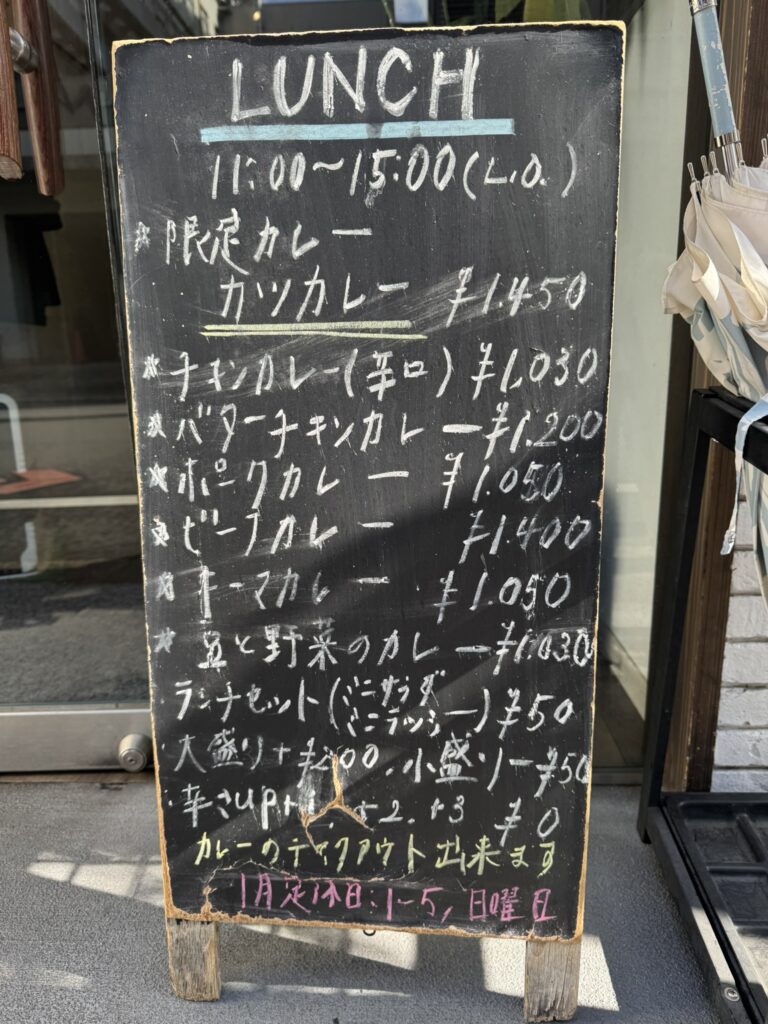 LUNCH
11:00～15:00(L.O.)
☆限定カレー
カツカレー ¥1.450
☆チキンカレー(辛口) ¥1.030
☆バターチキンカレー ¥1.200
☆ポークカレー ¥1.050
☆ビーフカレー ¥1.400
☆キーマカレー ¥1.050
☆豆と野菜のカレー ¥1.030
ランチセット(ミニサラダ ミニラッシー) ¥50
大盛り+¥200.小盛り-¥50
・辛さup+1.+2.+3 ¥0
カレーのテイクアウト出来ます
1月定休日:1～5,日曜日